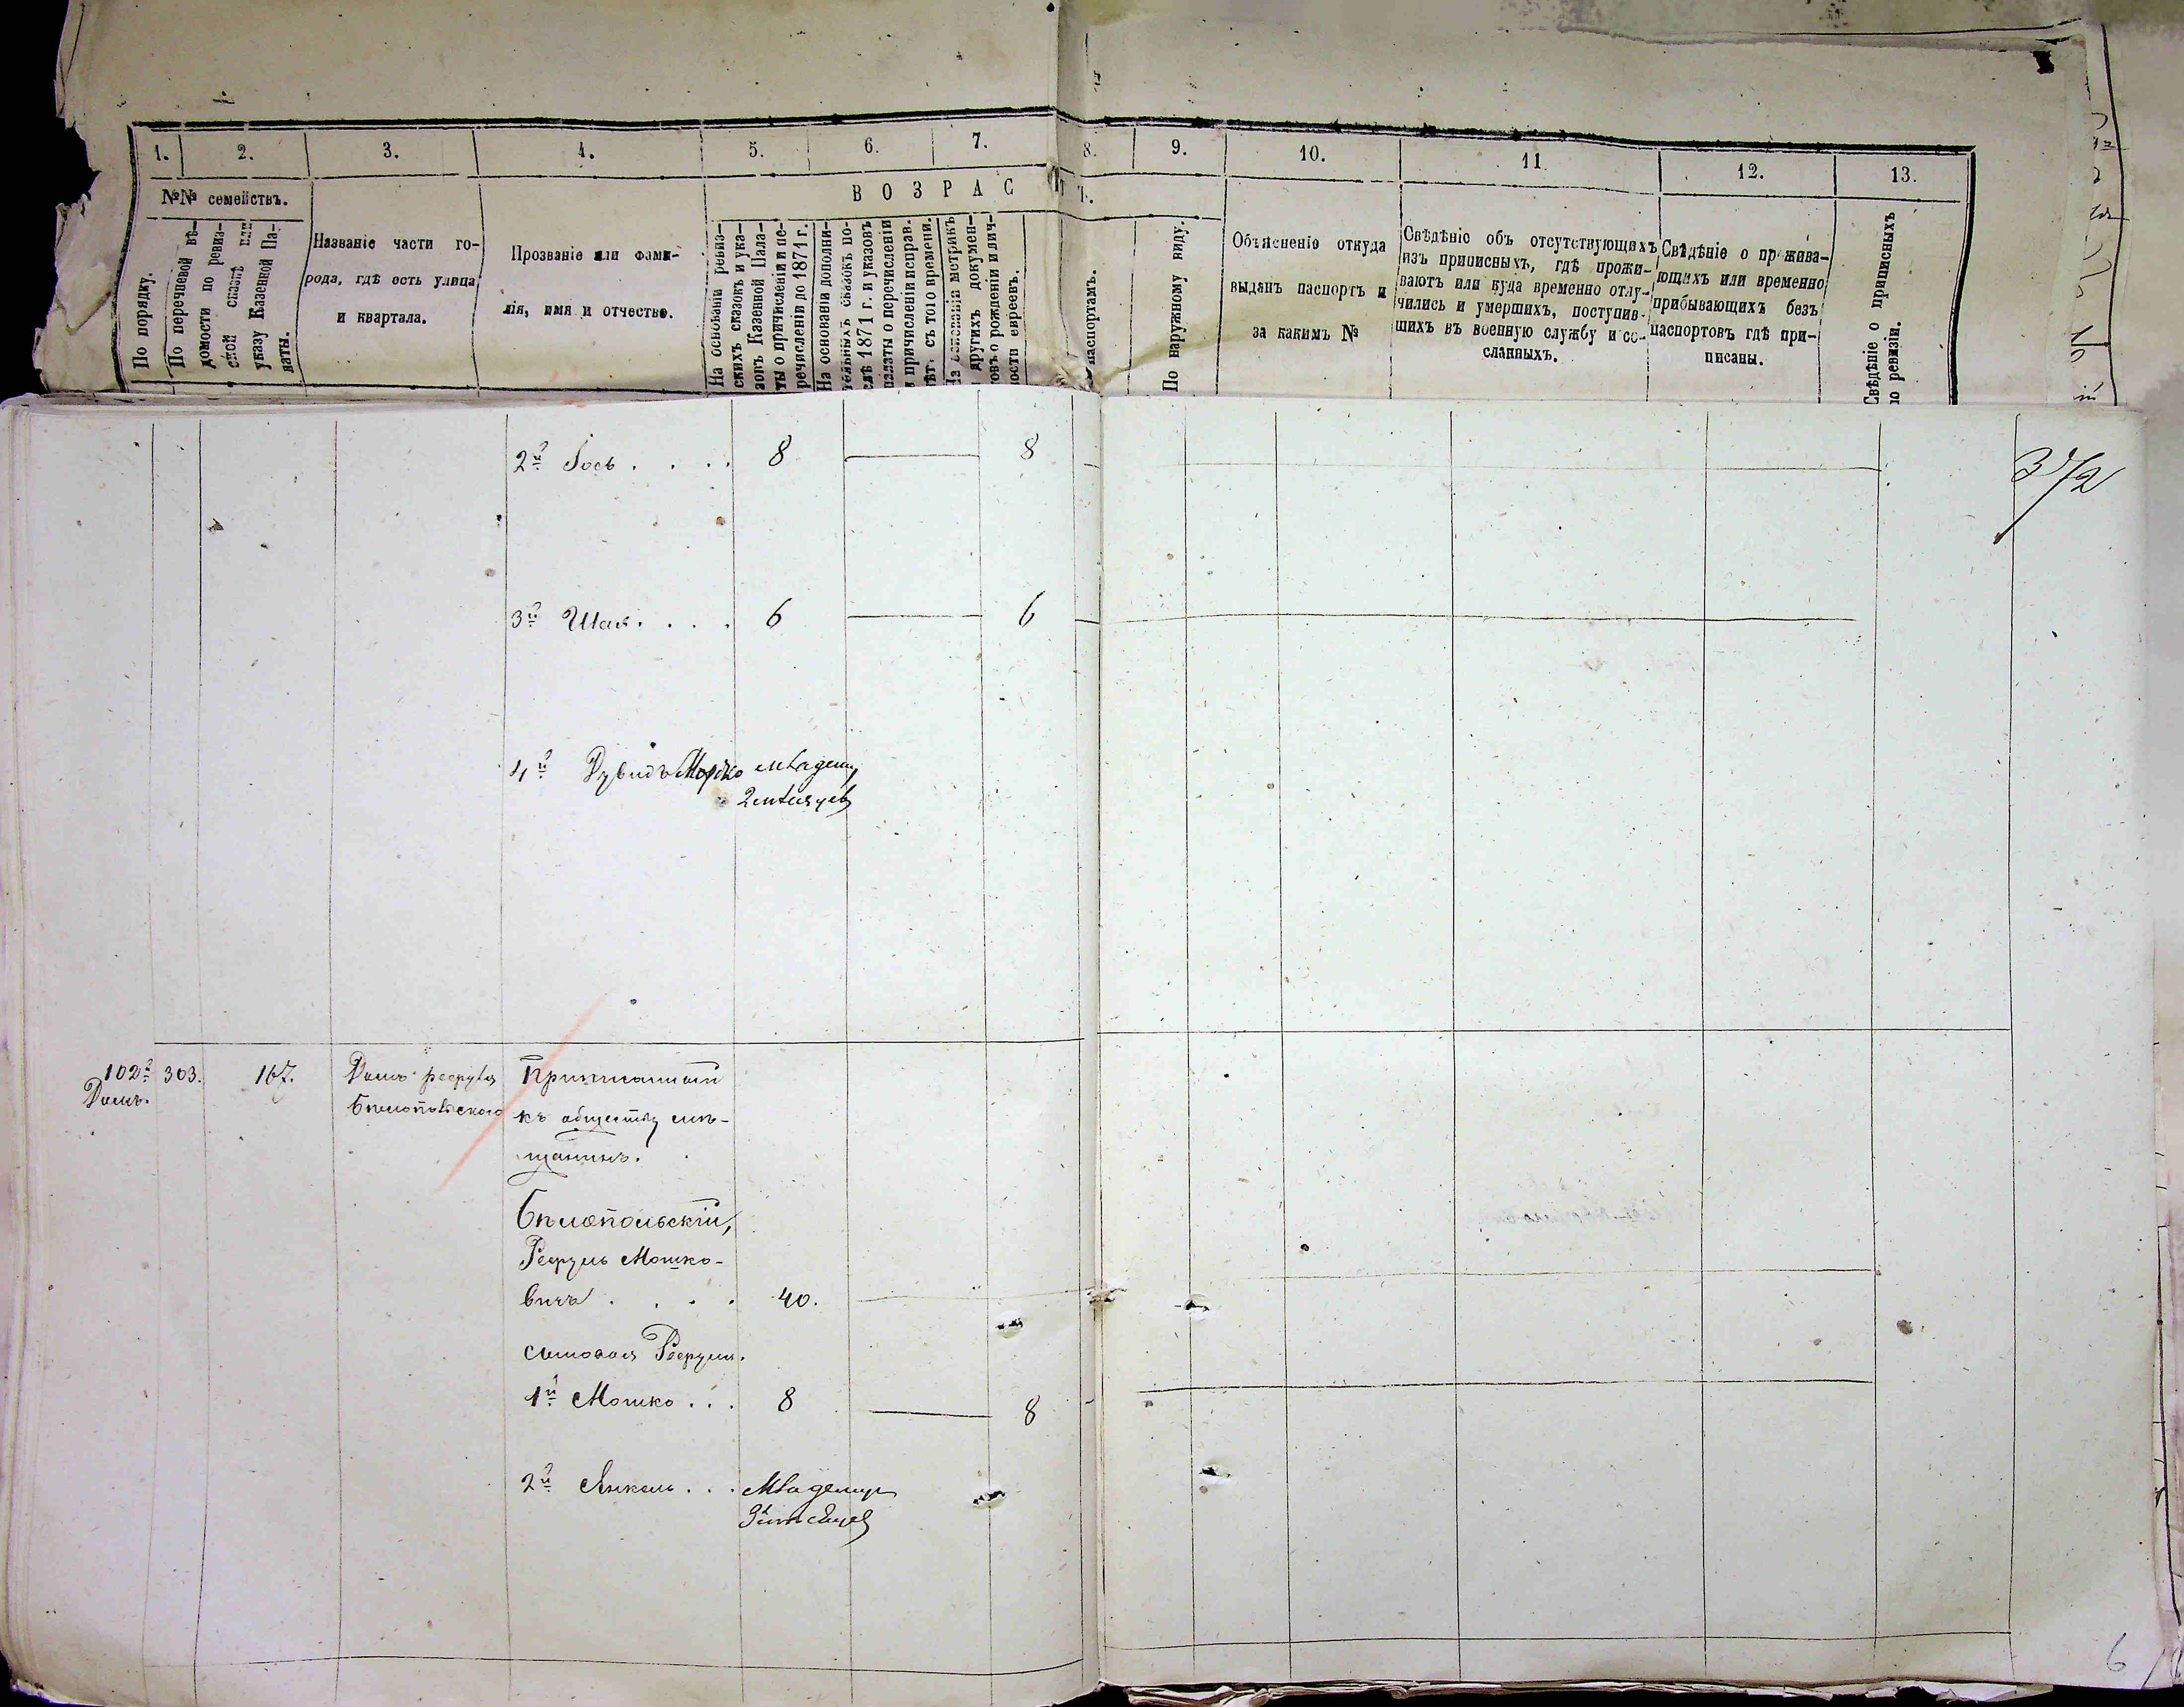 1. 2. 3. 4. 5. 6. 7. 8. 9. 10. 11. 12. 13.
№№ семействъ.
По порядку.
По перечневой вѣ-
домости по ревиз-
ской сказкѣ или
указу Казенной Па-
латы.
Названіе части го-
рода, гдѣ есть улица
и квартала.
Прозваніе или фами-
лія, имя и отчество.
ВОЗРАСТЪ.
На основаніи ревиз-
скихъ сказокъ и ука-
зовъ Казенной Пала-
ты о причисленіи и пе-
речисленіи до 1871 г.
На основаніи дополни-
тельныхъ сказокъ по-
слѣ 1871 г. и указовъ
палаты о перечисленіи
и причисленіи исправ.
лѣт. съ того времени.
На основаніи метрикъ
и другихъ докумен-
товъ о рожденіи и лич-
ности евреевъ.
паспортамъ.
По наружному виду.
Объясненіе откуда
выданъ паспортъ и
за какимъ №
Свѣдѣніе объ отсутствующихъ
изъ приписныхъ, гдѣ прожи-
ваютъ или куда временно отлу-
чились и умершихъ, поступив-
шихъ въ военную службу и со-
сланныхъ.
Свѣдѣніе о прожива-
ющихъ или временно
прибывающихъ безъ
паспортовъ гдѣ при-
писаны.
Свѣдѣніе о приписныхъ
по ревизіи.
372
2й Іось . . . . 8 — 8
3й . . . . 6 — 6
4й Дувидъ Мошко младенец
2 мѣсяцев
102й 303. 167. Домъ
Домъ.
Бѣлопольского
Приписанный
къ обществу мѣ-
щанинъ.
Бѣлопольскій,
Мошко-
вичъ . . . . 40.
сыновья
1й Мошко . . . 8 — 8
2й Янкель . . . Младенец
6